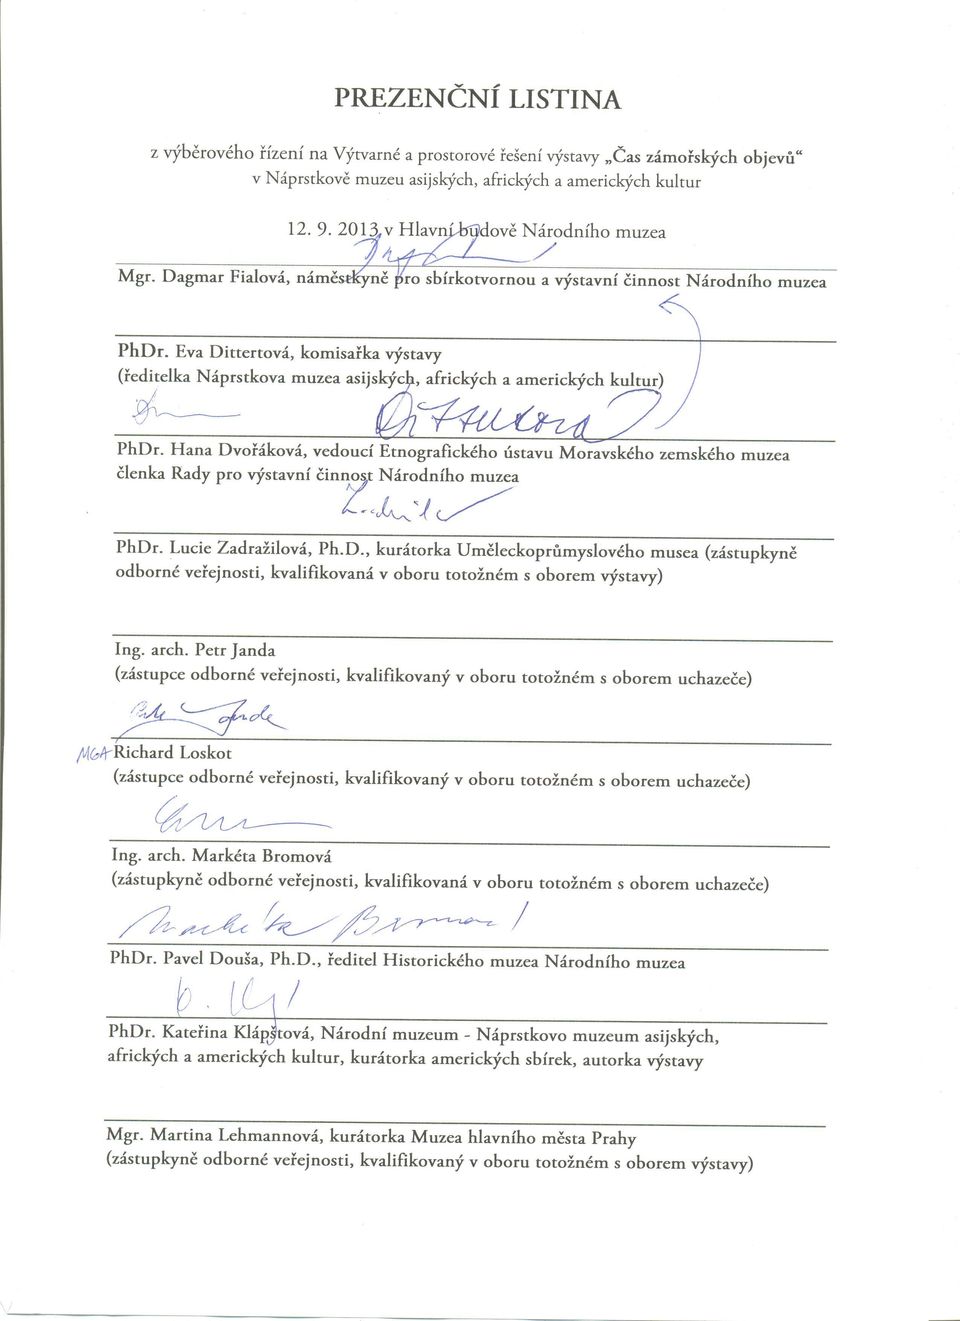 PREZENČNÍ LISTINA
z výběrového řízení na Výtvarné a prostorové řešení výstavy „Čas zámořských objevů“
v Náprstkově muzeu asijských, afrických a amerických kultur
12. 9. 2013 v Hlavní budově Národního muzea
Mgr. Dagmar Fialová, náměstkyně pro sbírkotvornou a výstavní činnost Národního muzea
PhDr. Eva Dittertová, komisařka výstavy
(ředitelka Náprstkova muzea asijských, afrických a amerických kultur)
Dittertová
PhDr. Hana Dvořáková, vedoucí Etnografického ústavu Moravského zemského muzea
členka Rady pro výstavní činnost Národního muzea
PhDr. Lucie Zadražilová, Ph.D., kurátorka Uměleckoprůmyslového musea (zástupkyně
odborné veřejnosti, kvalifikovaná v oboru totožném s oborem výstavy)
Ing. arch. Petr Janda
(zástupce odborné veřejnosti, kvalifikovaný v oboru totožném s oborem uchazeče)
MGA Richard Loskot
(zástupce odborné veřejnosti, kvalifikovaný v oboru totožném s oborem uchazeče)
Ing. arch. Markéta Bromová
(zástupkyně odborné veřejnosti, kvalifikovaná v oboru totožném s oborem uchazeče)
PhDr. Pavel Douša, Ph.D., ředitel Historického muzea Národního muzea
PhDr. Kateřina Klápštová, Národní muzeum - Náprstkovo muzeum asijských,
afrických a amerických kultur, kurátorka amerických sbírek, autorka výstavy
Mgr. Martina Lehmannová, kurátorka Muzea hlavního města Prahy
(zástupkyně odborné veřejnosti, kvalifikovaný v oboru totožném s oborem výstavy)